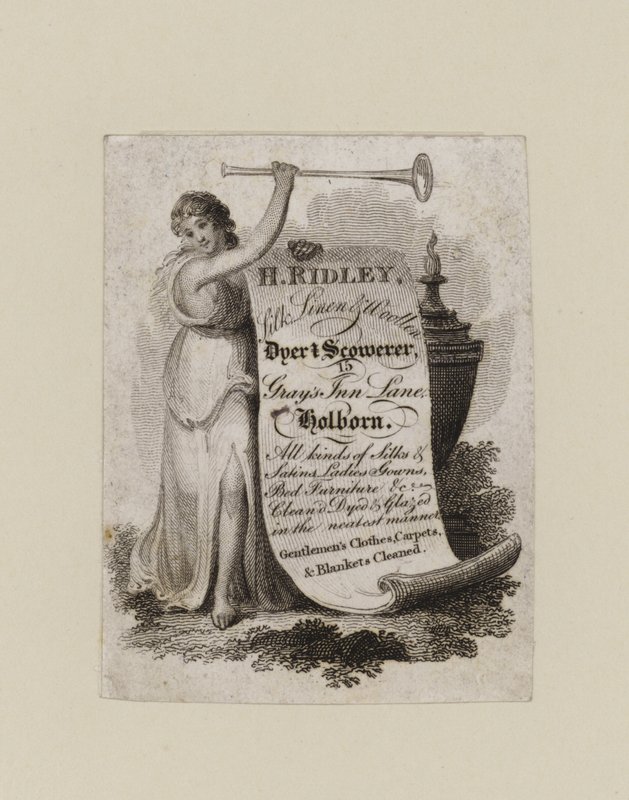 H. RIDLEY.
Silk Linen & Woollen
Dyer & Scowerer,
15
Gray's Inn Lane,
Holborn.
All kinds of Silks &
Satins Ladies Gowns,
Bed Furniture &c.
Clean'd Dyed & Glazed
in the neatest manner
Gentlemen's Clothes, Carpets,
& Blankets Cleaned.